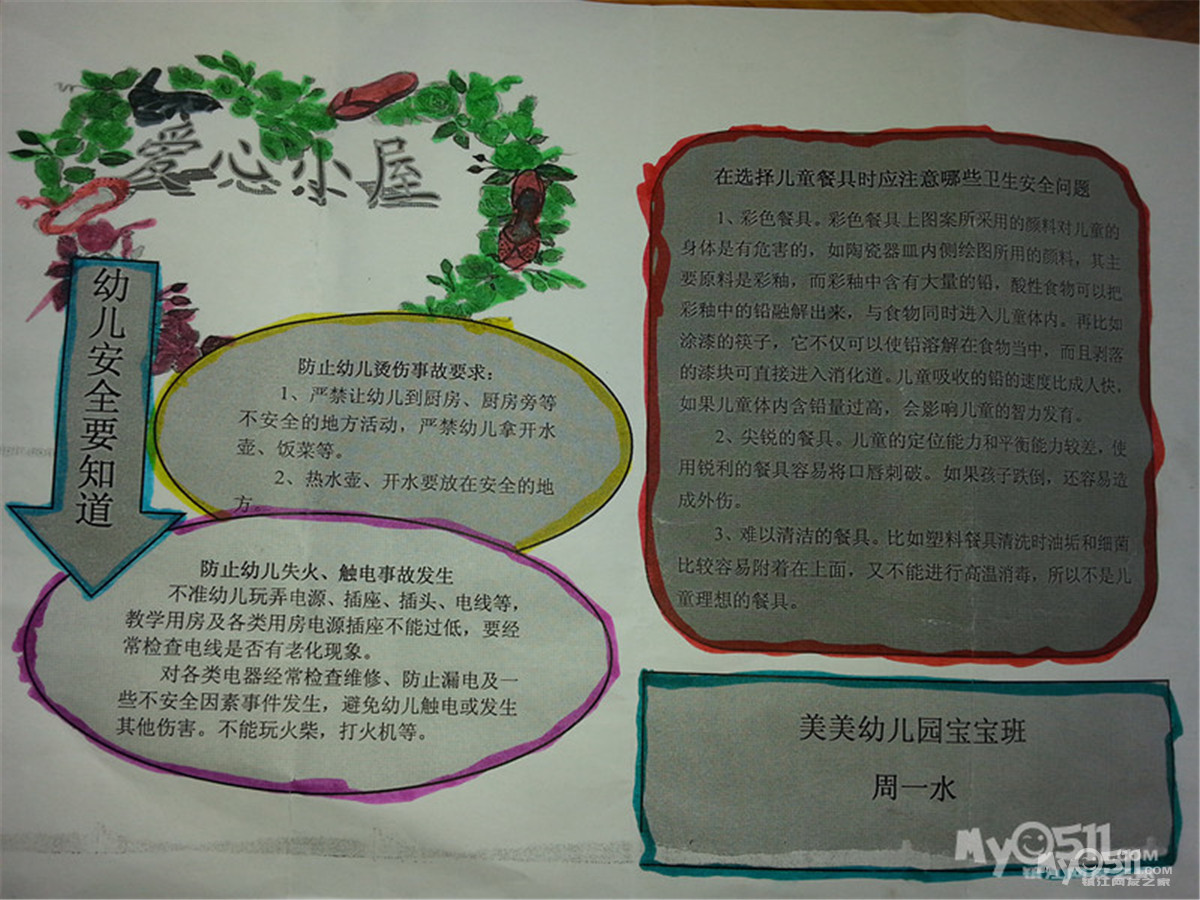 爱心小屋
幼儿安全要知道
防止幼儿烫伤事故要求：
1、严禁让幼儿到厨房、厨房旁等
不安全的地方活动，严禁幼儿拿开水
壶、饭菜等。
2、热水壶、开水要放在安全的地
方。
防止幼儿失火、触电事故发生
不准幼儿玩弄电源、插座、插头、电线等，
教学用房及各类用房电源插座不能过低，要经
常检查电线是否有老化现象。
对各类电器经常检查维修、防止漏电及一
些不安全因素事件发生，避免幼儿触电或发生
其他伤害。不能玩火柴，打火机等。
在选择儿童餐具时应注意哪些卫生安全问题
1、彩色餐具。彩色餐具上图案所采用的颜料对儿童的
身体是有危害的，如陶瓷器皿内侧绘图所用的颜料，其主
要原料是彩釉，而彩釉中含有大量的铅，酸性食物可以把
彩釉中的铅融解出来，与食物同时进入儿童体内。再比如
涂漆的筷子，它不仅可以使铅溶解在食物当中，而且剥落
的漆块可直接进入消化道。儿童吸收的铅的速度比成人快，
如果儿童体内含铅量过高，会影响儿童的智力发育。
2、尖锐的餐具。儿童的定位能力和平衡能力较差，使
用锐利的餐具容易将口唇刺破。如果孩子跌倒，还容易造
成外伤。
3、难以清洁的餐具。比如塑料餐具清洗时油垢和细菌
比较容易附着在上面，又不能进行高温消毒，所以不是儿
童理想的餐具。
美美幼儿园宝宝班
周一水
My0511
My0511.COM
镇江网友之家